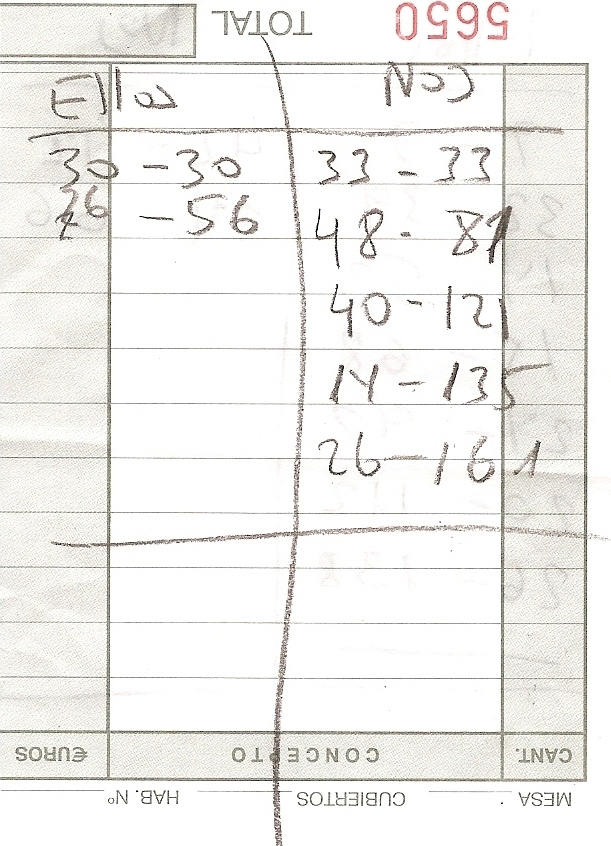 TOTAL 5650
Ellos Nos
30 - 30 33 - 33
26 - 56 48 - 81
40 - 121
14 - 135
26 - 161
€UROS CONCEPTO CANT.
HAB. Nº CUBIERTOS MESA